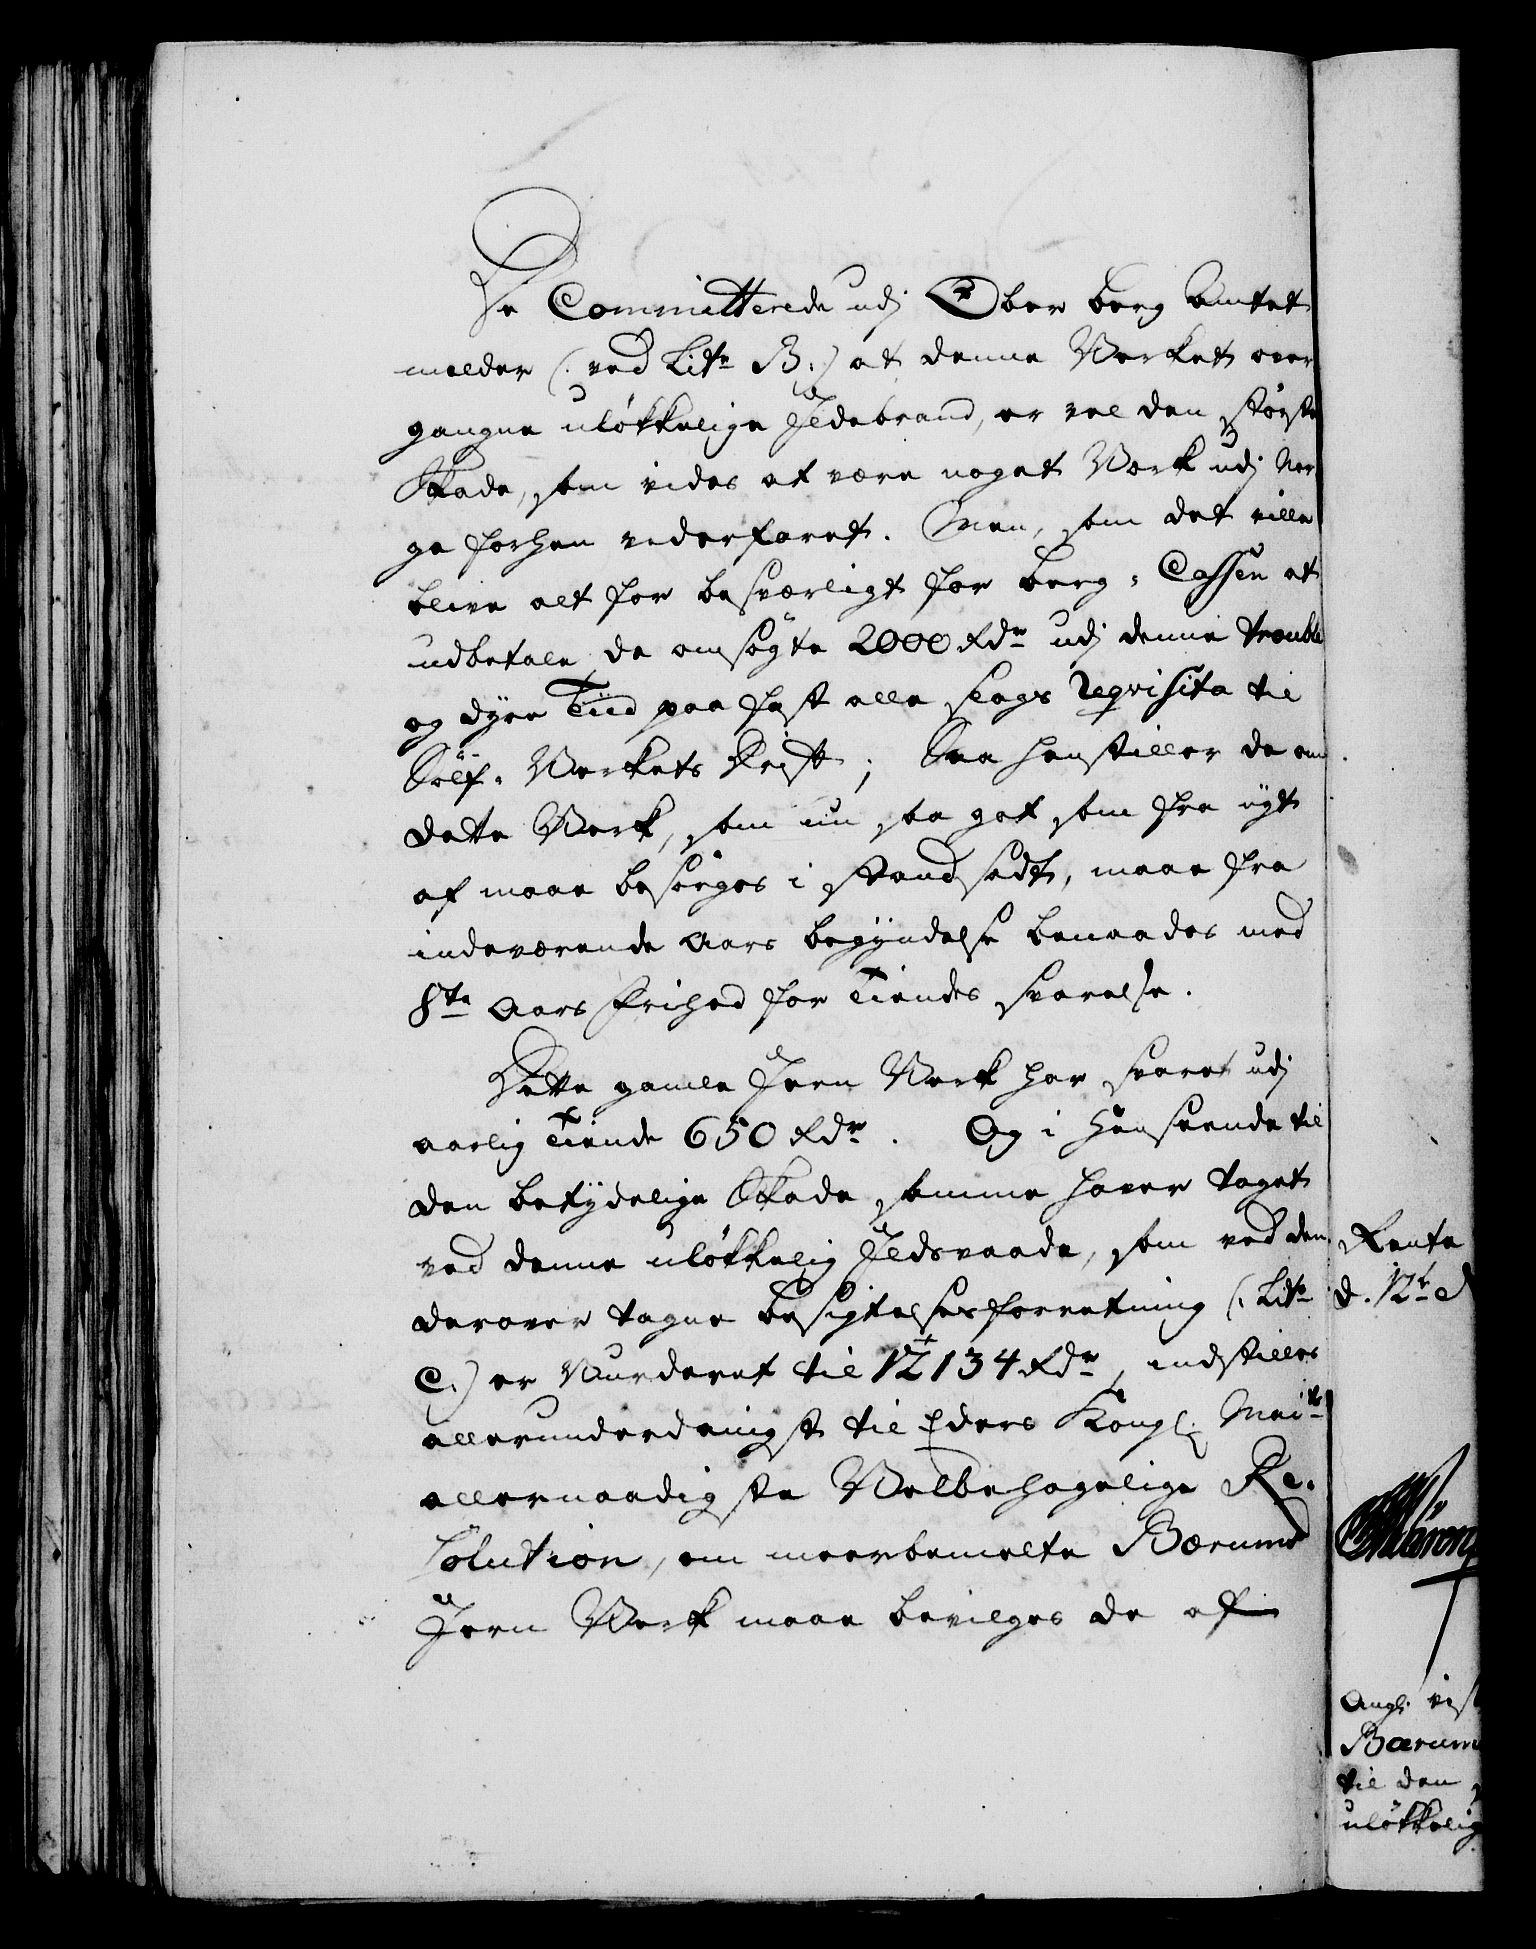 De Committerede udj Ober berg Amtet
melder (: ved Litr B:) at denne Verket over
gangne uløkkelige Ildebrand, er vel den største
Skade, som vides at være noget Verk udj Nor
ge forhen vederfaret. Men, som det ville
blive alt for besværligt for berg-Cassen at
udbetale de ansøgte 2000 Rdr udj denne trouble
og dyre Tiid paa fast alle slags reqvisita til
Sølf-Verkets Drift; Saa henstiller de om
dette Verk, som nu saa got som fra nyt
af maae besørges i Stand sadt, maae fra
indeværende Aars begyndelse benaades med
8te Aars Frihed for Tiendes svarelse.
Dette gamle Jern Verk har svaret udj
aarlig Tiende 650 Rdr. Og i Henseende til
den betydelige Skade samme haver taget
ved denne uløkkelig Ildsvaade, som ved den
derover tagne besigtelsesforretning (: Litr
C:) er Vurderet til 12134 Rdr, indstilles
allerunderdanigst til Eders Kongl. Maits
allernaadigste Velbehagelige Re-
solution, om meerbemelte Bærums
Jern Verk maae bevilges de af
Rente
d. 12t
Angl.
Bærum
til den
uløkkelig